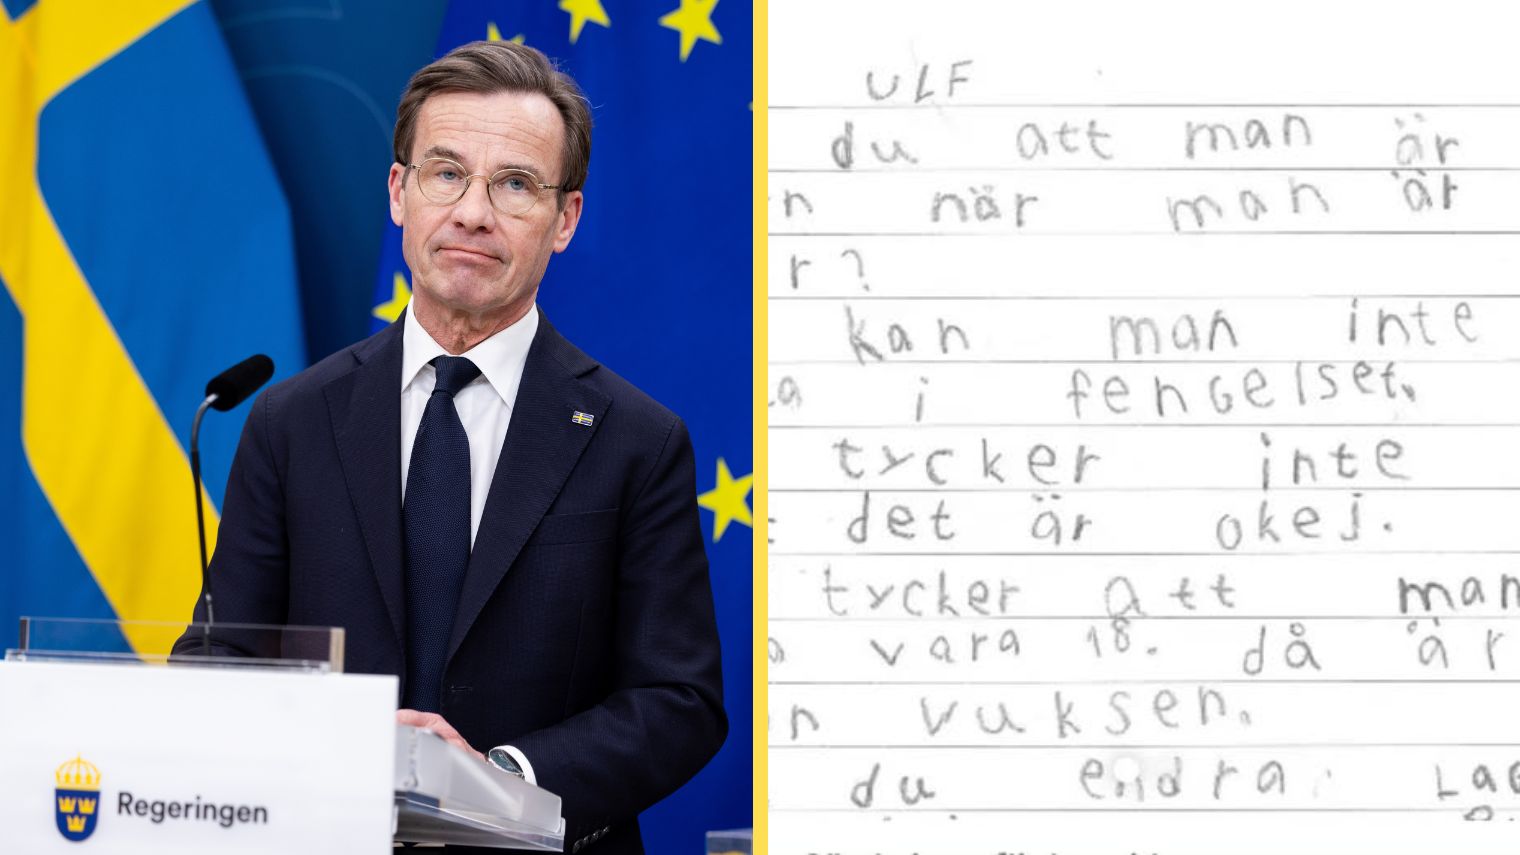 Regeringen
ULF
du att man är
n när man är
r?
kan man inte
a i fengelset.
tycker inte
t det är okej.
tycker att man
a vara 18. då är
n vuksen.
du endra